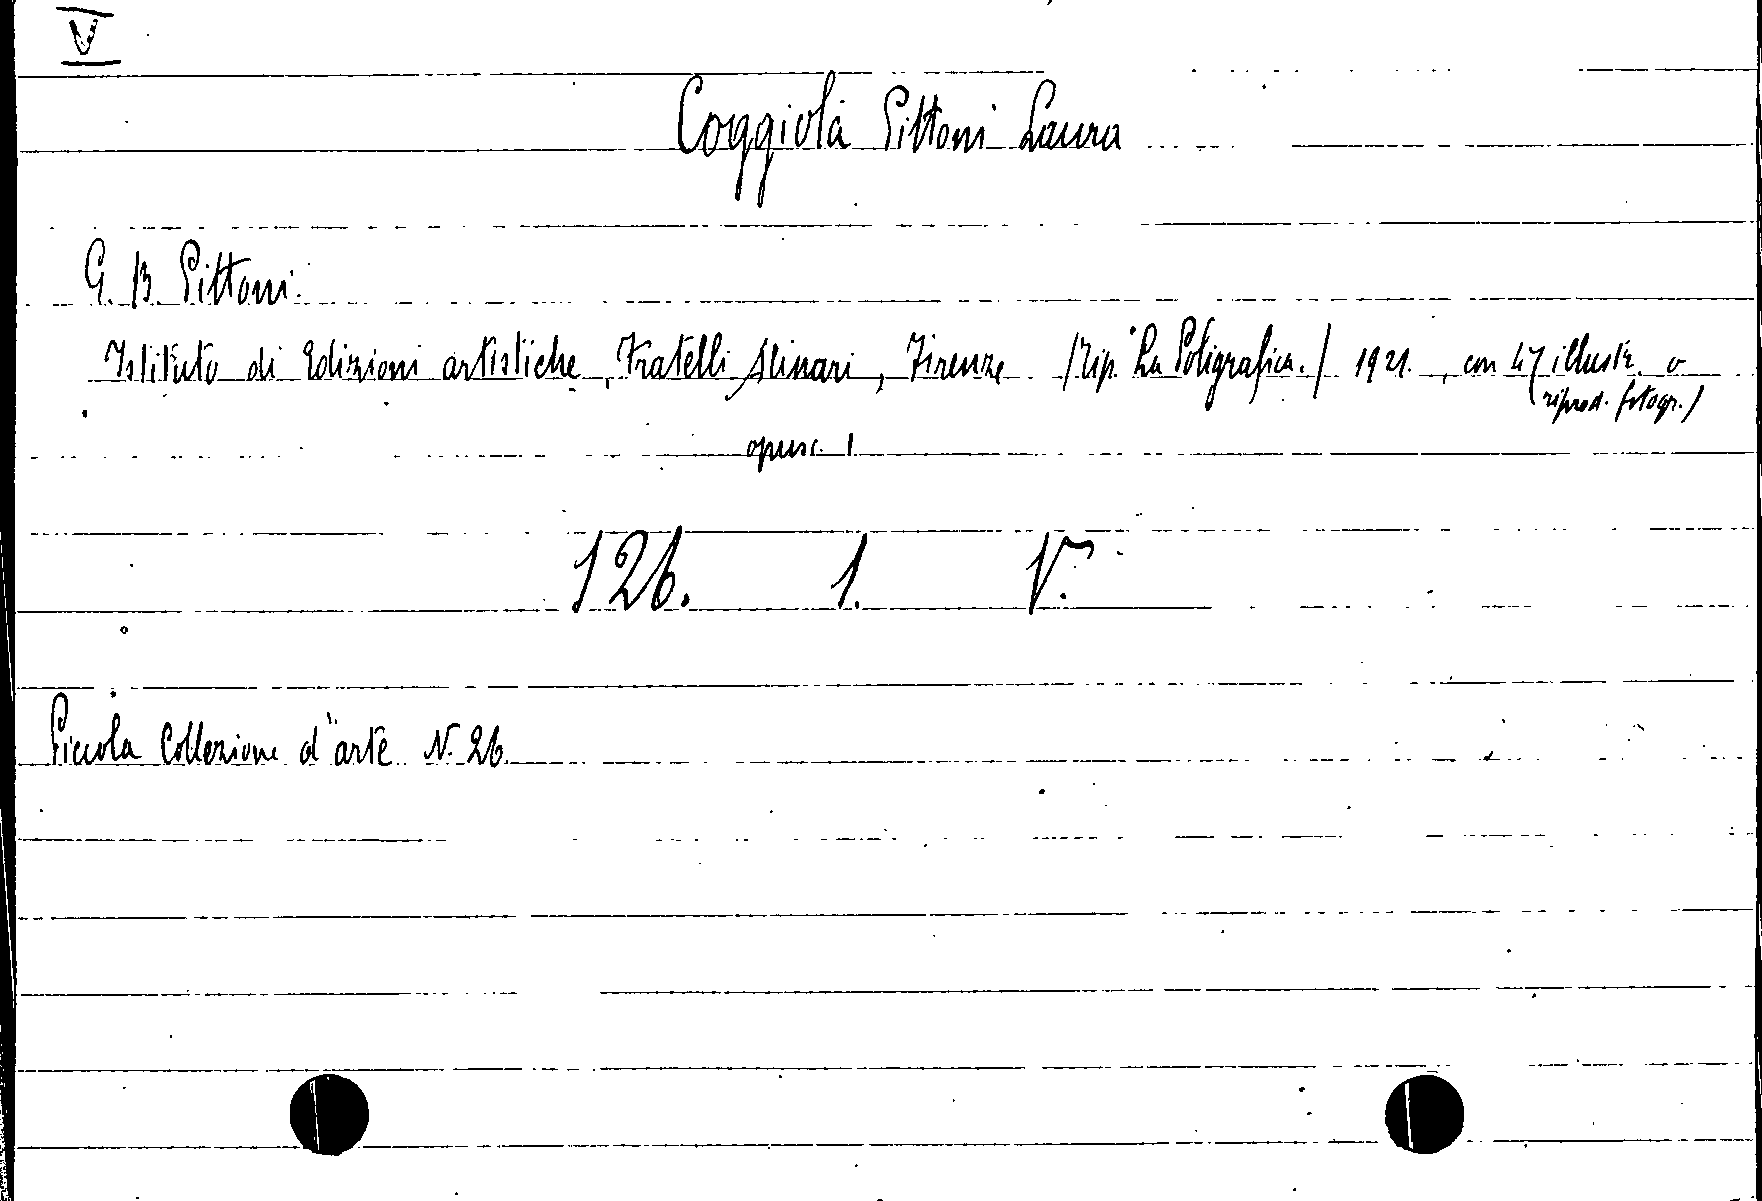 V
Coggiola Pittoni Laura
G. B. Pittoni.
Istituto di Edizioni artistiche, Fratelli Alinari, Firenze /Tip. "La Poligrafica./ 1921., con 47 illustr. o
riprod. fotogr./
opusc. 1
126. 1. V.
Piccola Collezione d'arte N. 26.